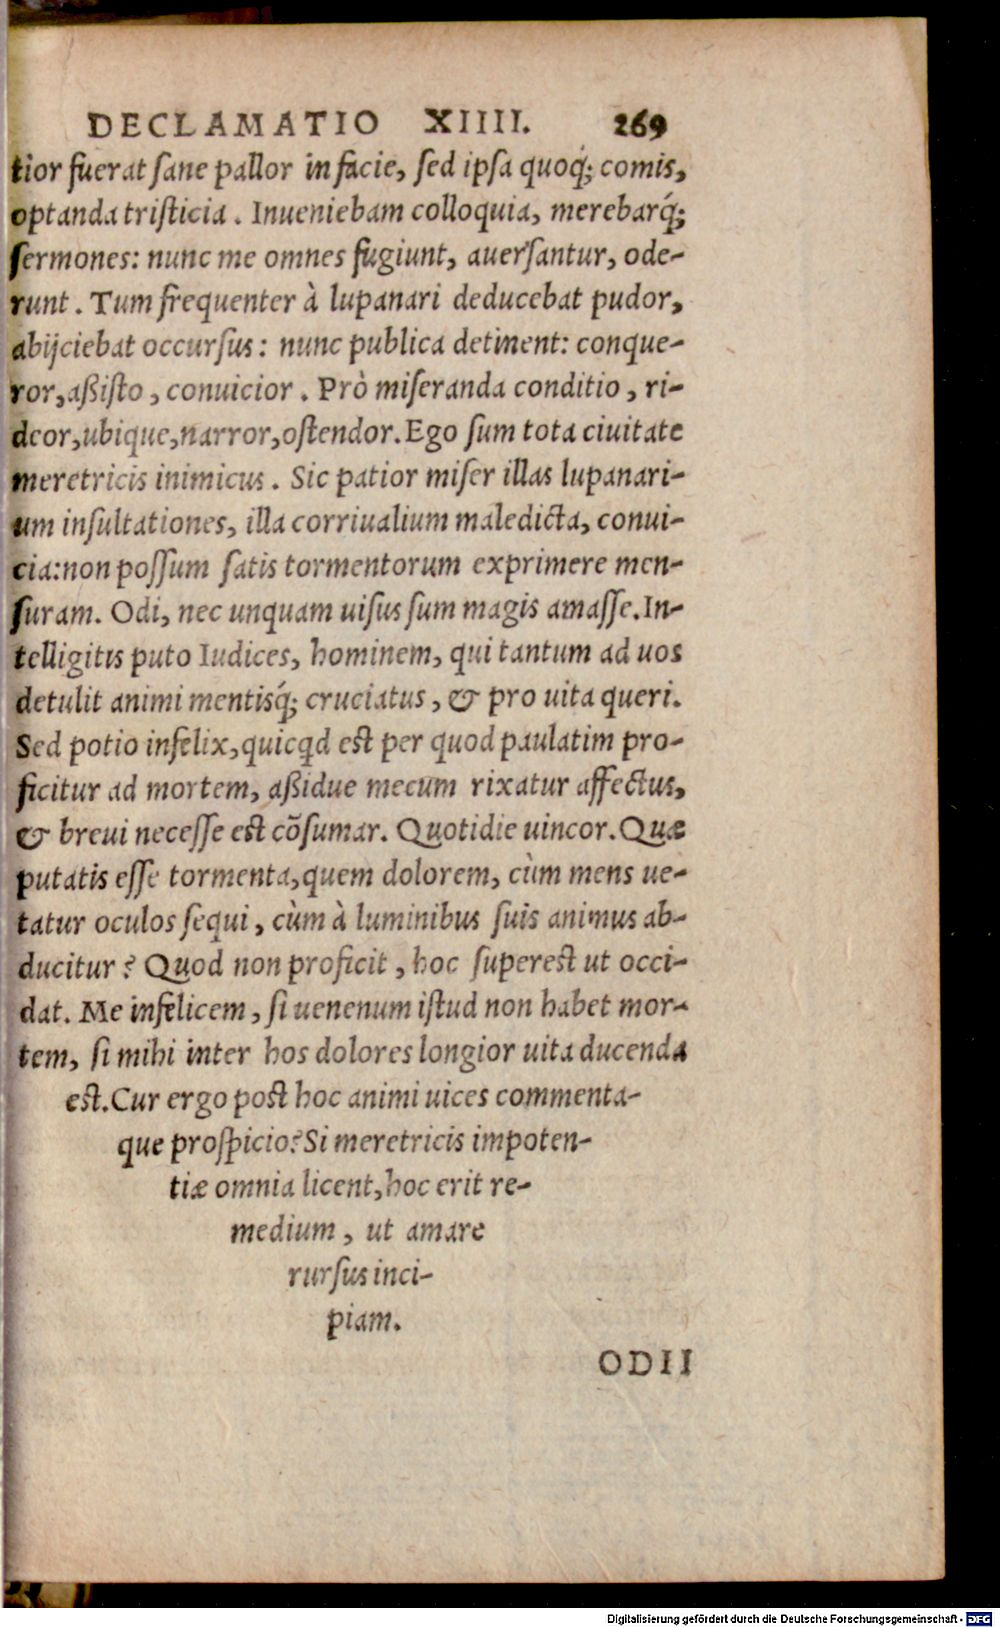 DECLAMATIO XIIII. 269
tior fuerat sane pallor in facie, sed ipsa quoq́; comis,
optanda tristicia. Inueniebam colloquia, merebarq́;
sermones: nunc me omnes fugiunt, auersantur, ode-
runt. Tum frequenter à lupanari deducebat pudor,
abijciebat occursus: nunc publica detinent: conque-
ror, aßisto, conuicior. Prò miseranda conditio, ri-
deor, ubique, narror, ostendor. Ego sum tota ciuitate
meretricis inimicus. Sic patior miser illas lupanari-
um insultationes, illa corriualium maledicta, conui-
cia: non possum satis tormentorum exprimere men-
suram. Odi, nec unquam uisus sum magis amasse. In-
telligitis puto Iudices, hominem, qui tantum ad uos
detulit animi mentisq́; cruciatus, & pro uita queri.
Sed potio infelix, quicqd est per quod paulatim pro-
ficitur ad mortem, aßidue mecum rixatur affectus,
& breui necesse est cõsumar. Quotidie uincor. Quæ
putatis esse tormenta, quem dolorem, cùm mens ue-
tatur oculos sequi, cùm à luminibus suis animus ab-
ducitur? Quod non proficit, hoc superest ut occi-
dat. Me infelicem, si uenenum istud non habet mor-
tem, si mihi inter hos dolores longior uita ducenda
est. Cur ergo post hoc animi uices commenta-
que prospicio? Si meretricis impoten-
tiæ omnia licent, hoc erit re-
medium, ut amare
rursus inci-
piam.
ODII
Digitalisierung gefördert durch die Deutsche Forschungsgemeinschaft - DFG